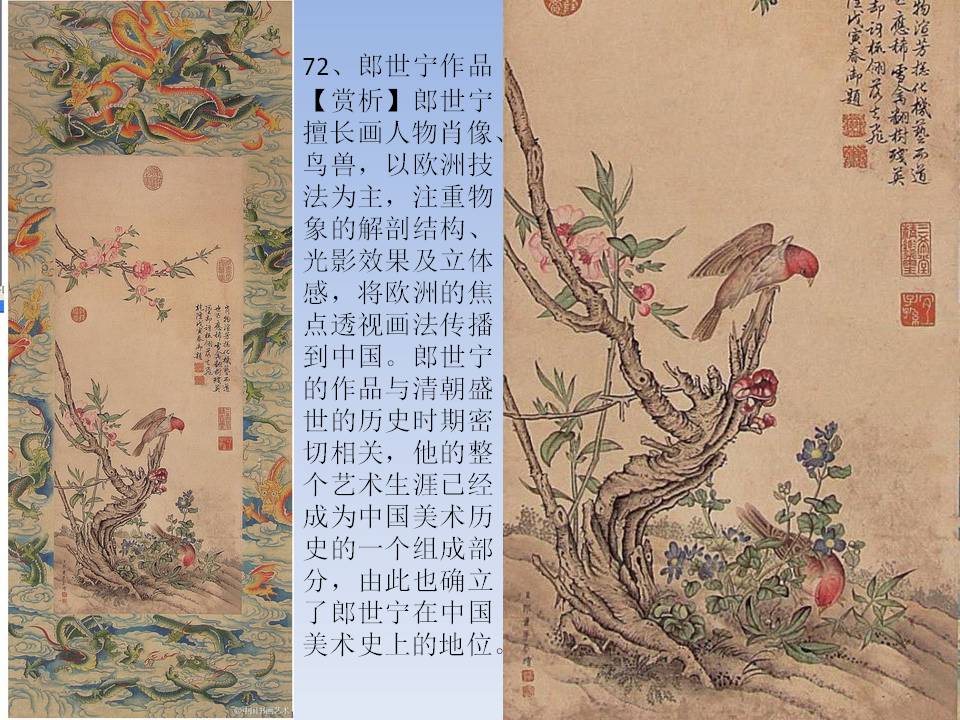 72、郎世宁作品
【赏析】郎世宁
擅长画人物肖像、
鸟兽，以欧洲技
法为主，注重物
象的解剖结构、
光影效果及立体
感，将欧洲的焦
点透视画法传播
到中国。郎世宁
的作品与清朝盛
世的历史时期密
切相关，他的整
个艺术生涯已经
成为中国美术历
史的一个组成部
分，由此也确立
了郎世宁在中国
美术史上的地位。
物渲芳摠化機藝而道
應稀雪禽翻樹殘英
隆戊寅春御題
中国书画艺术